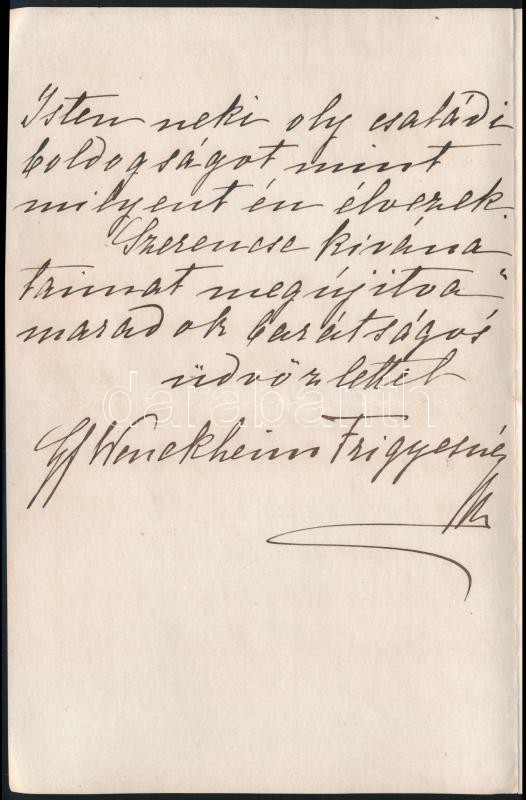 Isten neki oly családi
boldogságot mint
milyent én élvezek.
Szerencse kivána
taimat megújitva
maradok barátságos
üdvözlettel
darabanth
Gf Wenckheim Frigyesné